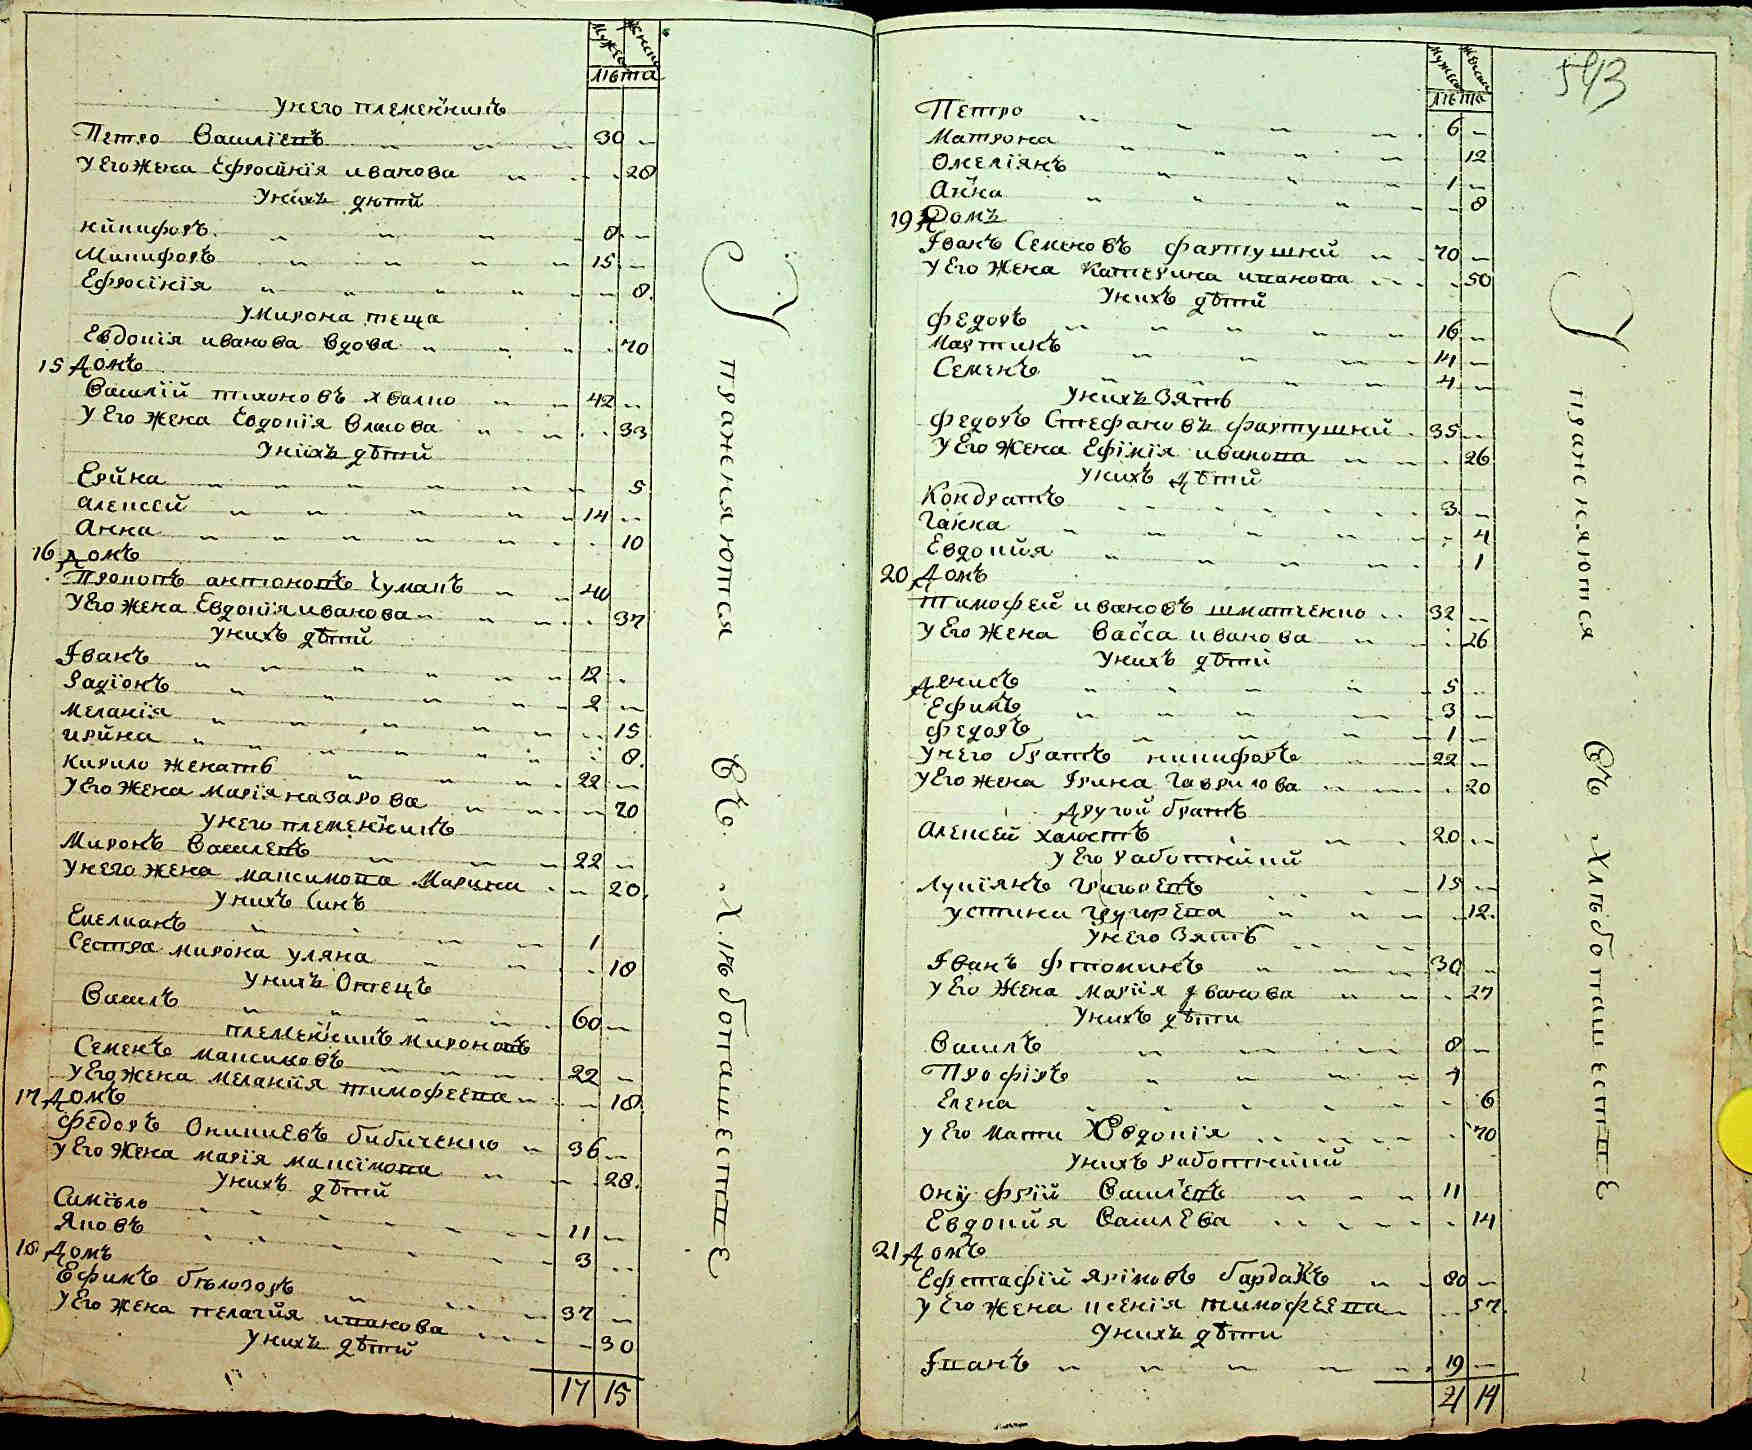 Мужеска Женска
лѣта
У него племенникъ
Петро Василіевъ 30
У Его жена Ефросинія иванова 28
У нихъ дѣтй
никифоръ 8
Микифоръ 15
Ефросінія 8
У мирона теща
Евдокія иванова вдова 70
15 Домъ
Василій тихоновъ хвалко 42
У Его жена Евдокія власова 33
У нихъ дѣтй
Ерйна 5
Алексей 14
Анна 10
16 Домъ
Прокопъ антоновъ Чумакъ 40
У Его жена Евдокія иванова 37
У нихъ дѣтй
Іванъ 12
Радіонъ 2
Меланія 15
ирйна 8
Кирило женатъ 22
У Его жена марія назарова 20
У него племенникъ
Миронъ Василевъ 22
У него жена максимова Марина 20
У нихъ Синъ
Емелианъ 1
Сестра мирона уляна 18
У нихъ Отецъ
Василъ 60
племенникъ мироновъ
Семенъ максимовъ 22
У Его жена мелания тимофеева 18
17 Домъ
Федоръ Оникиевъ бибиченко 36
У Его жена марія максімова 28
У нихъ дѣтй
Самійло 11
Яковъ 3
18 Домъ
Ефимъ білозоръ 37
У Его жена пелагия иванова 30
У нихъ дѣтй
17 15
упражняются въ хлѣбопашествѣ
Мужеска Женска
лѣта
543
Петро 6
Матрона 12
Омеліянъ 1
Анна 8
19 Домъ
Іванъ Семеновъ фартушнй 70
У Его жена Катерина иванова 50
У нихъ дѣтй
Федоръ 16
Мартинъ 14
Семенъ 4
У нихъ Зять
Федоръ Стефановъ фартушнй 35
У Его жена Ефімія иванова 26
У нихъ дѣтй
Кондратъ 3
Ганна 4
Евдокия 1
20 Домъ
тимофей ивановъ шматченко 32
У Его жена Васса иванова 26
У нихъ дѣтй
Денисъ 5
Ефимъ 3
Федоръ 1
У него братъ никифоръ 22
У Его жена Ірина Гаврилова 20
Другой братъ
Алексей халостъ 20
У Его работнйкй
Лукіянъ Григоревъ 15
устина Григорева 12
У него Зять
Іванъ Фтоминъ 30
У Его жена Марія іванова 27
У нихъ дѣти
Василъ 8
Профіръ 7
Елена 6
У Его мати Євдокія 70
У нихъ работнйкй
Онуфрій Васильевъ 11
Евдокия Василева 14
21 Домъ
Ефстафій Яхімовъ бардакъ 80
У Его жена ксенія тимофеева 57
У нихъ дѣти
Іванъ 19
21 14
упражняются въ хлѣбопашествѣ